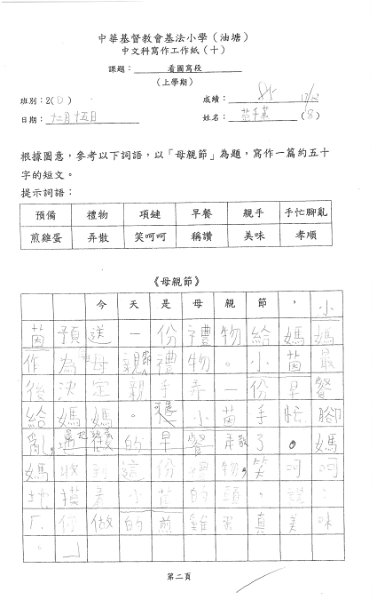 中華基督教會基法小學（油塘）
中文科寫作工作紙（十）
課題：看圖寫段
（上學期）
班別：2(D) 成績：
日期：十二月十五日 姓名：(8)
根據圖意，參考以下詞語，以「母親節」為題，寫作一篇約五十
字的短文。
提示詞語：
預備 禮物 項鏈 早餐 親手 手忙腳亂
煎雞蛋 弄散 笑呵呵 稱讚 美味 孝順
《母親節》
今天是母親節，小
茵預送一份禮物給媽媽
作為母親節禮物。小茵最
後決定親手弄一份早餐
給媽媽。小茵手忙腳
亂，的早餐弄散了。媽
媽收到這份禮物，笑呵呵
地摸着小茵的頭，說：
「你做的煎雞蛋真美味
。」
第二頁